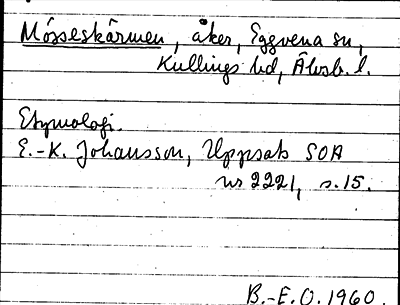 Mósseskärmen, åker, Eggvena sn,
Kullings hd, Älvsb. l.
Etymologi.
E.-K. Johansson, Uppsats SOA
nr 2221, s. 15.
B.-E. O. 1960.